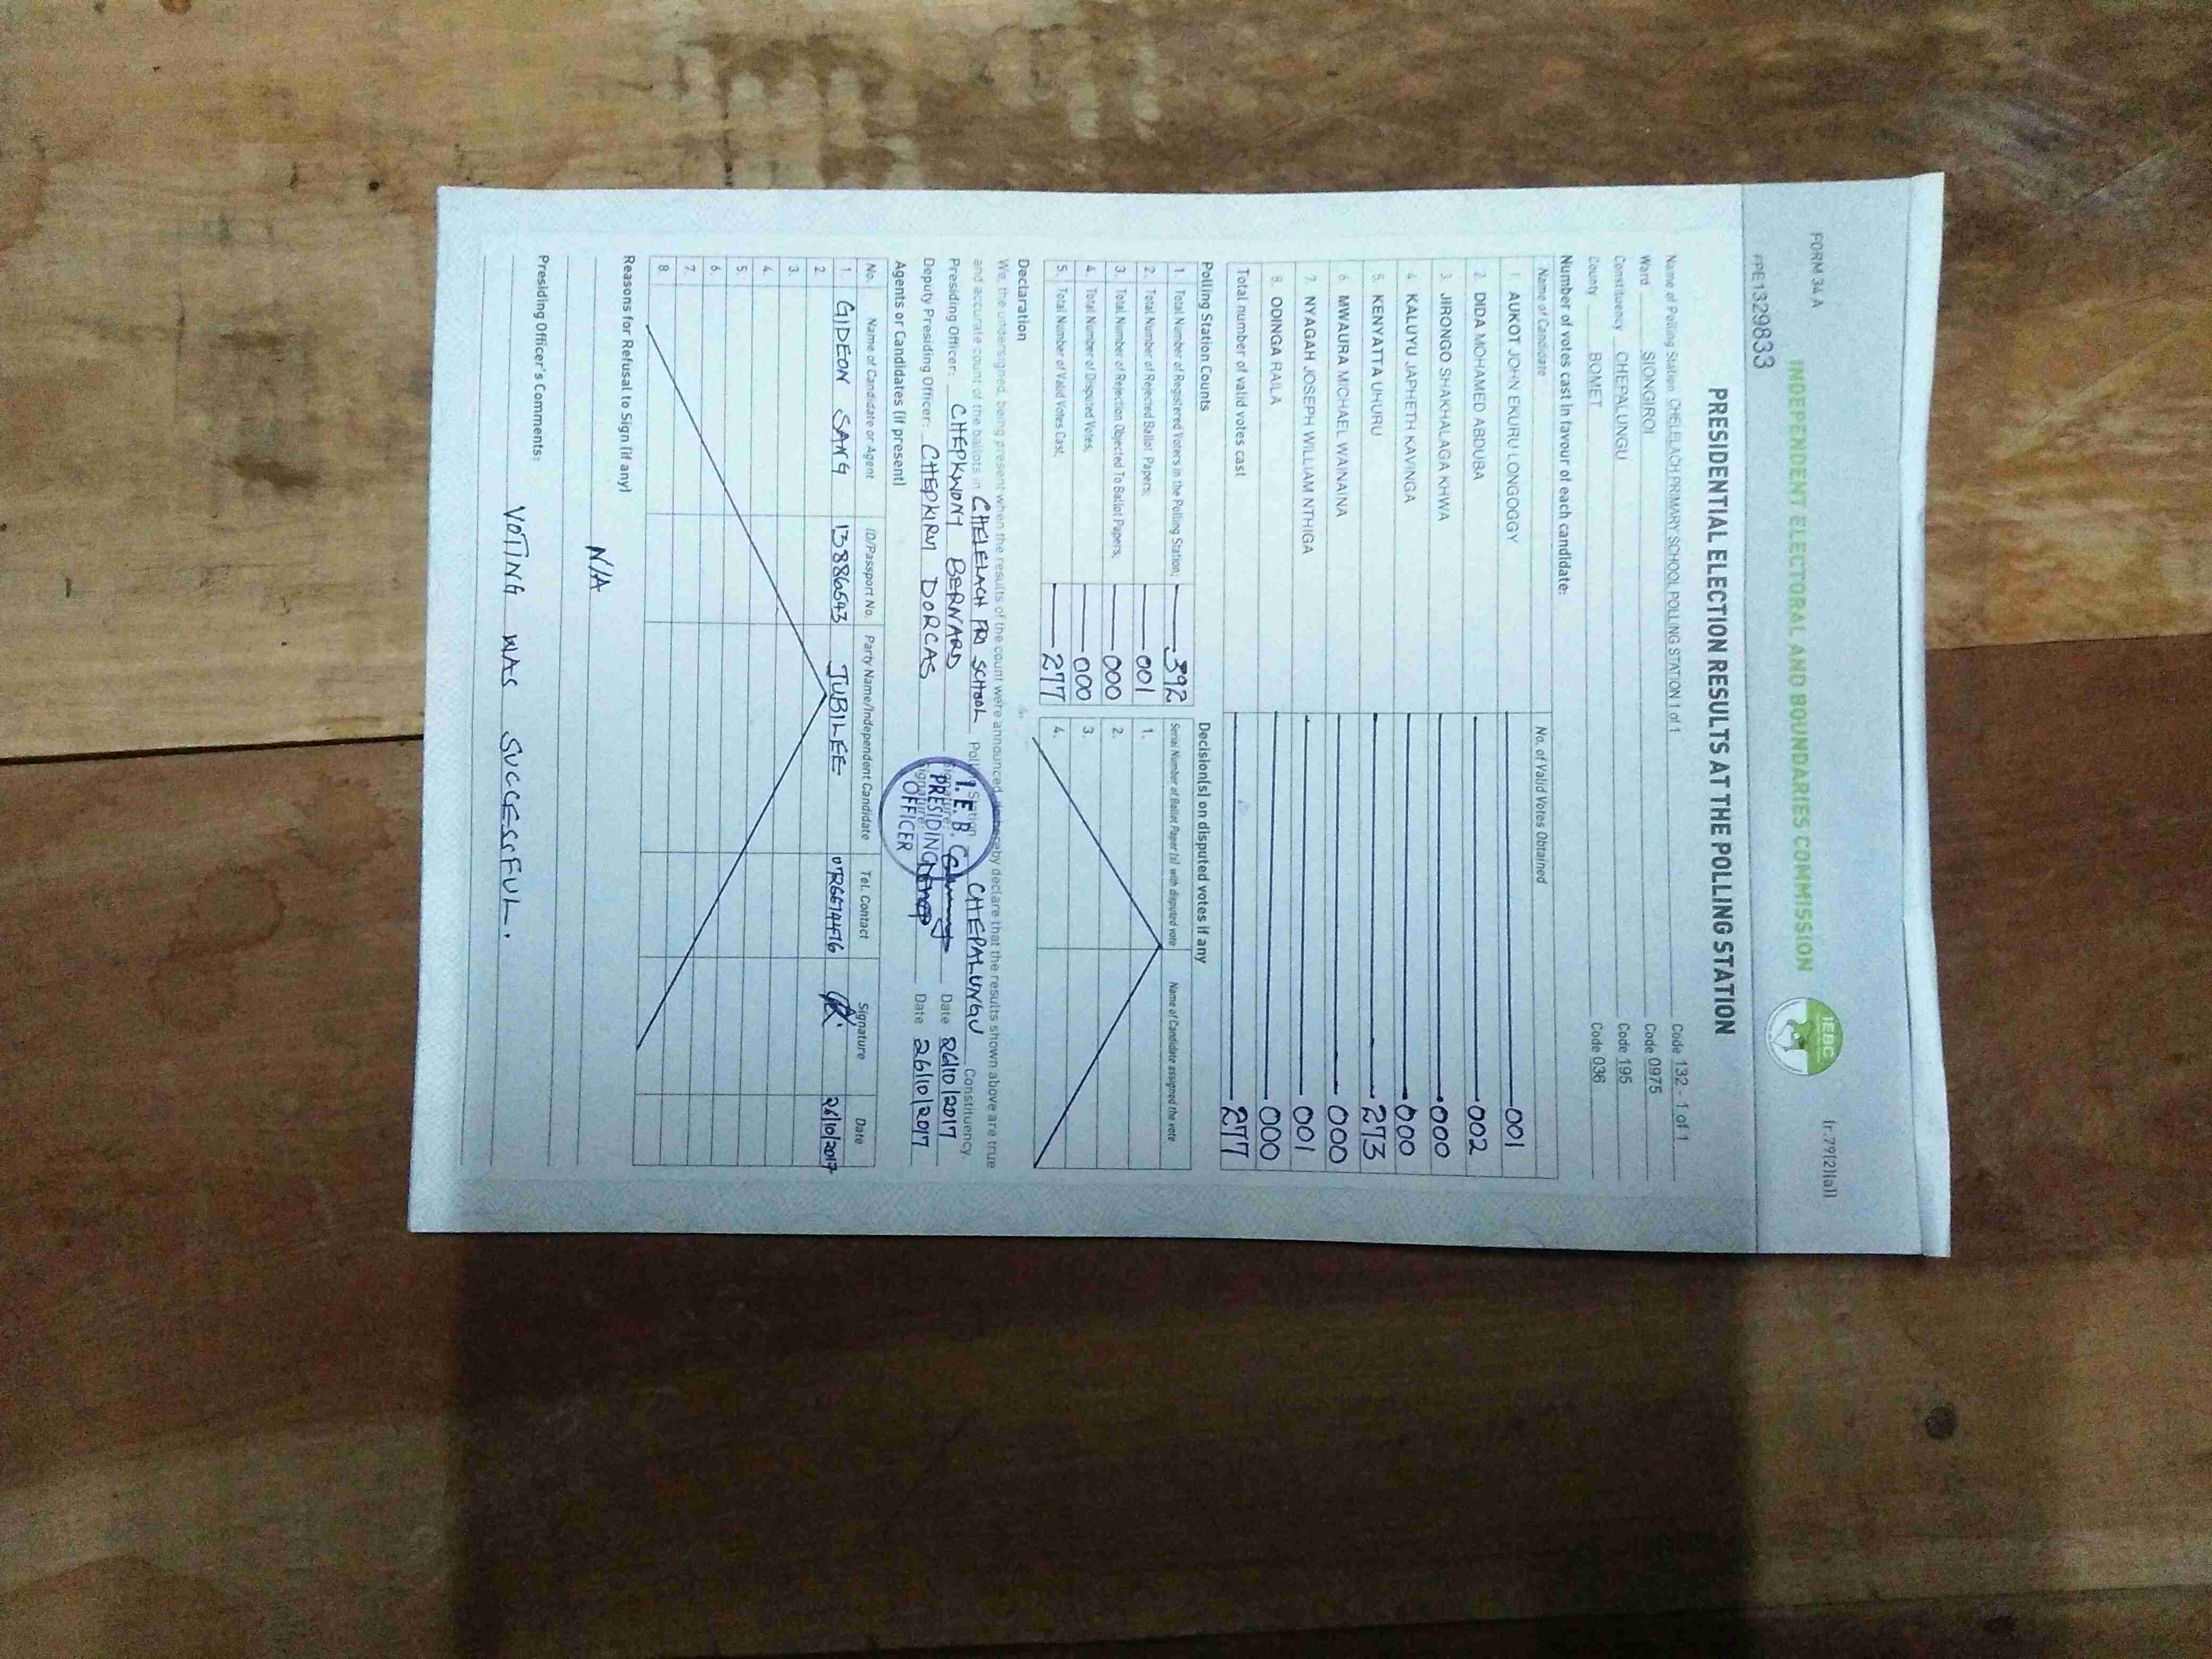 FORM 34 A
(r.79(2)(a))
INDEPENDENT ELECTORAL AND BOUNDARIES COMMISSION
IEBC
PRESIDENTIAL ELECTION RESULTS AT THE POLLING STATION
Name of Polling Station CHELELACH PRIMARY SCHOOL POLLING STATION 1 of 1 Code 132 - 1 of 1
Ward SIONGIROI Code 0975
Constituency CHEPALUNGU Code 195
County BOMET Code 036
Number of votes cast in favour of each candidate:
Name of Candidate No. of Valid Votes Obtained
1. AUKOT JOHN EKURU LONGOGGY 001
2. DIDA MOHAMED ABDUBA 002
3. JIRONGO SHAKHALAGA KHWA 000
4. KALUYU JAPHETH KAVINGA 000
5. KENYATTA UHURU 273
6. MWAURA MICHAEL WAINAINA 000
7. NYAGAH JOSEPH WILLIAM NTHIGA 001
8. ODINGA RAILA 000
Total number of valid votes cast 277
Polling Station Counts
1. Total Number of Registered Voters in the Polling Station; 392
2. Total Number of Rejected Ballot Papers; 001
3. Total Number of Rejection Objected To Ballot Papers; 000
4. Total Number of Disputed Votes; 000
5. Total Number of Valid Votes Cast; 277
Decision(s) on disputed votes if any
Serial Number of Ballot Paper (s) with disputed vote Name of Candidate assigned the vote
1.
2.
3.
4.
Declaration
We, the undersigned, being present when the results of the count were announced, declare that the results shown above are true
and accurate count of the ballots in CHELELACH PRI SCHOOL Polling Station CHEPALUNGU Constituency.
Presiding Officer: CHEPKWONY BERNARD Signature: Date 26/10/2017
Deputy Presiding Officer: CHEPKIRUI DORCAS Signature: Date 26/10/2017
I. E. B. C
PRESIDING
OFFICER
Agents or Candidates (if present)
No. Name of Candidate or Agent ID/Passport No. Party Name/Independent Candidate Tel. Contact Signature Date
1. GIDEON SANG 13886643 JUBILEE 26/10/2017
2.
3.
4.
5.
6.
7.
8.
Reasons for Refusal to Sign (if any)
N/A
Presiding Officer's Comments:
VOTING WAS SUCCESSFUL.